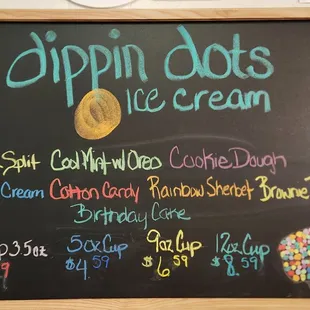 dippin dots
Ice cream
Split Cool Mint w/ Oreo Cookie Dough
Cream Cotton Candy Rainbow Sherbet Brownie
Birthday Cake
p 3.5oz 5oz Cup 9oz Cup 12oz Cup
9 $4.59 $6.59 $8.59